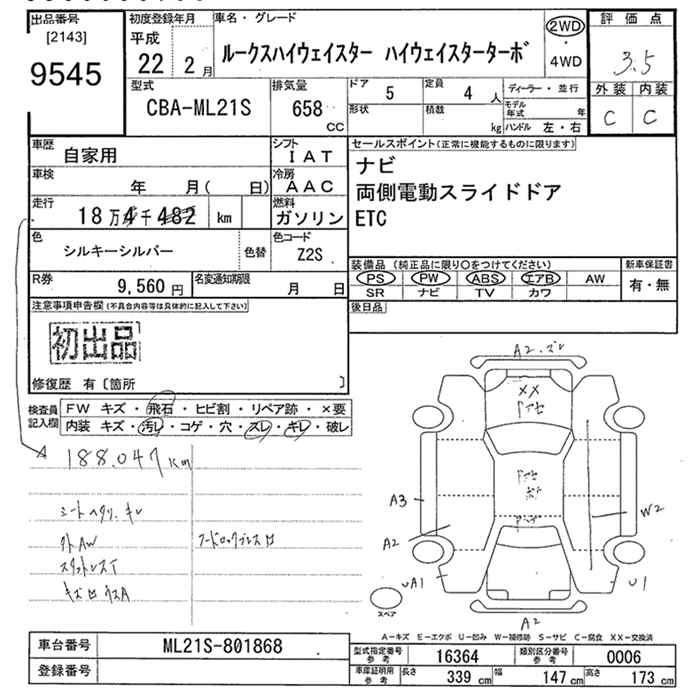 出品番号
[2143]
9545
初度登録年月
平成
22 2月
車名・グレード
ルークスハイウェイスター ハイウェイスターターボ
2WD
・
4WD
評価点
3.5
外装 内装
C C
型式
CBA-ML21S
排気量
658
CC
ドア 5
定員 4 人
形状
積載 kg
ディーラー・並行
モデル年式 年
ハンドル 左・右
車歴
自家用
シフト
IAT
車検
年 月( 日)
冷房
AAC
走行
18万4千482 km
燃料
ガソリン
色
シルキーシルバー
色替
色コード
Z2S
R券
9,560円
名変通知期限
月 日
セールスポイント(正常に機能するものに限ります)
ナビ
両側電動スライドドア
ETC
装備品(純正品に限り○をつけてください)
PS PW ABS エアB AW
SR ナビ TV カワ
新車保証書
有・無
後日品
注意事項申告欄(不具合内容等は具体的に記入して下さい)
初出品
修復歴 有〔箇所 〕
検査員記入欄
FW キズ・飛石・ヒビ割・リペア跡・×要
内装 キズ・汚レ・コゲ・穴・スレ・キレ・破レ
188.047km
シートヘタリ.キレ
クトAW
スタットレスT
キズ凹ウスA
A2.ズレ
XX
A3
A2
W2
UA1
U1
A2
スペア
A-キズ E-エクボ U-凹み W-補修跡 S-サビ C-腐食 XX-交換済
車台番号
ML21S-801868
登録番号
型式指定番号
参考
16364
類別区分番号
参考
0006
車庫証明用
参考
長さ 339 cm
幅 147 cm
高さ 173 cm